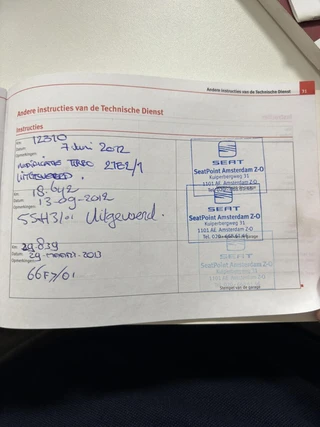 Andere instructies van de Technische Dienst 31
Andere instructies van de Technische Dienst
Instructies
Km: 12310
Datum: 7 Juni 2012
Opmerkingen:
2182/1
UITGEVOERD.
Km: 18.642
Datum: 13-09-2012
Opmerkingen:
55H3/01 Uitgevoerd.
Km: 29.839
Datum: 29-maart-2013
Opmerkingen:
66F7/01
SEAT
SeatPoint Amsterdam Z-O
Kuiperbergweg 31
1101 AE Amsterdam Z-O
SEAT
SeatPoint Amsterdam Z-O
Kuiperbergweg 31
1101 AE Amsterdam Z-O
SEAT
SeatPoint Amsterdam Z-O
Kuiperbergweg 31
1101 AE Amsterdam Z-O
Stempel van de garage